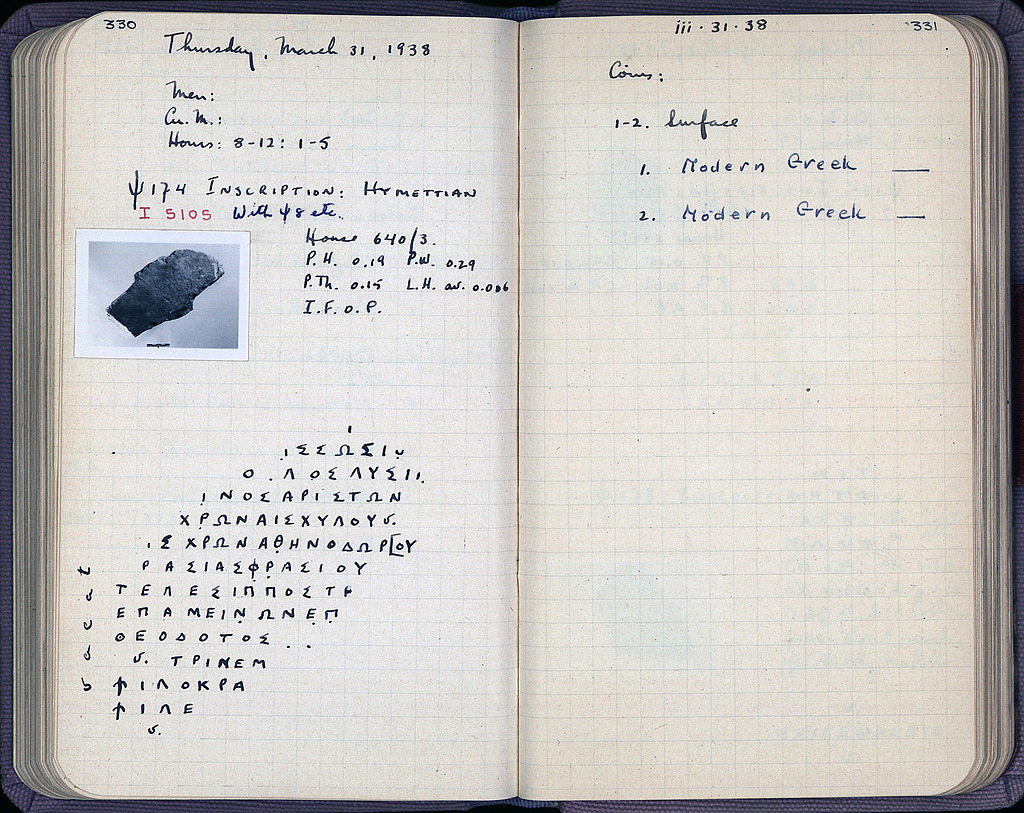 330
Thursday, March 31, 1938
Men:
Cu. M.:
Hours: 8-12: 1-5
ψ 174 INSCRIPTION: HYMETTIAN
I 5105 With ψ 8 etc.
House 640/3.
P.H. 0.19 P.W. 0.29
P.Th. 0.15 L.H. av. 0.006
I.F.o.P.
ΙΣΣΩΣΙ
Ο . Λ ΟΣ ΛΥΣΙ
ΙΝΟΣΑΡΙΣΤΩΝ
ΧΡΩΝΑΙΣΧΥΛΟΥ v.
ΣΧΡΩΝΑΘΗΝΟΔΩΡ[ΟΥ
ΡΑΣΙΑΣΦΡΑΣΙΟΥ
ΤΕΛΕΣΙΠΠΟΣΤ
ΕΠΑΜΕΙΝΩΝΕΠ
ΘΕΟΔΟΤΟΣ . .
v. ΤΡΙΝΕΜ
ΦΙΛΟΚΡΑ
ΦΙΛΕ
v.
iii · 31 · 38
331
Coins:
1-2. Surface
1. Modern Greek
2. Modern Greek